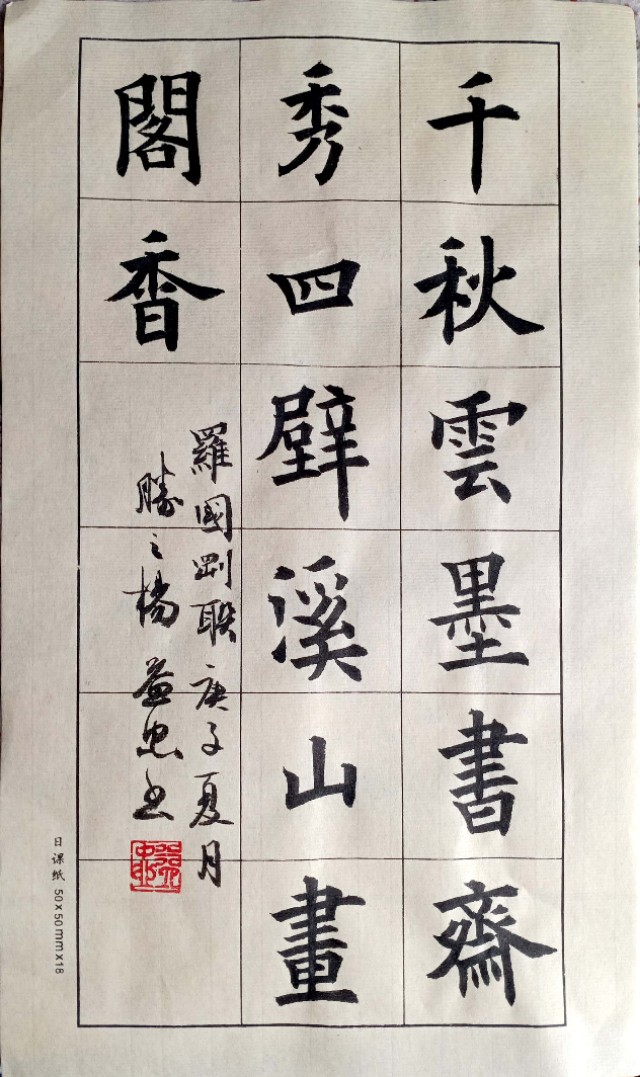 千秋雲墨書齋
秀四壁溪山畫
閣香
羅國剛联庚子夏月
勝之楊益忠书
日课纸 50x50mmx18